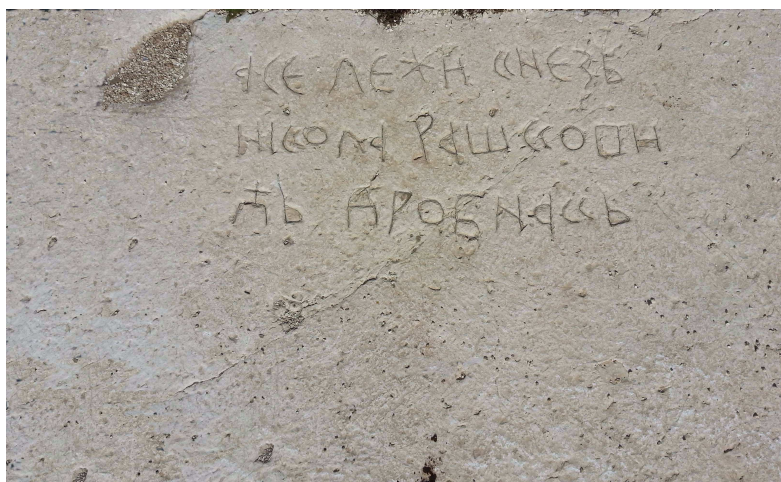 АСЕ ЛЕЖИ КНЕЗЬ
НІКОЛА РАШКОВИ
ЋЬ ДРОБНАКЬ